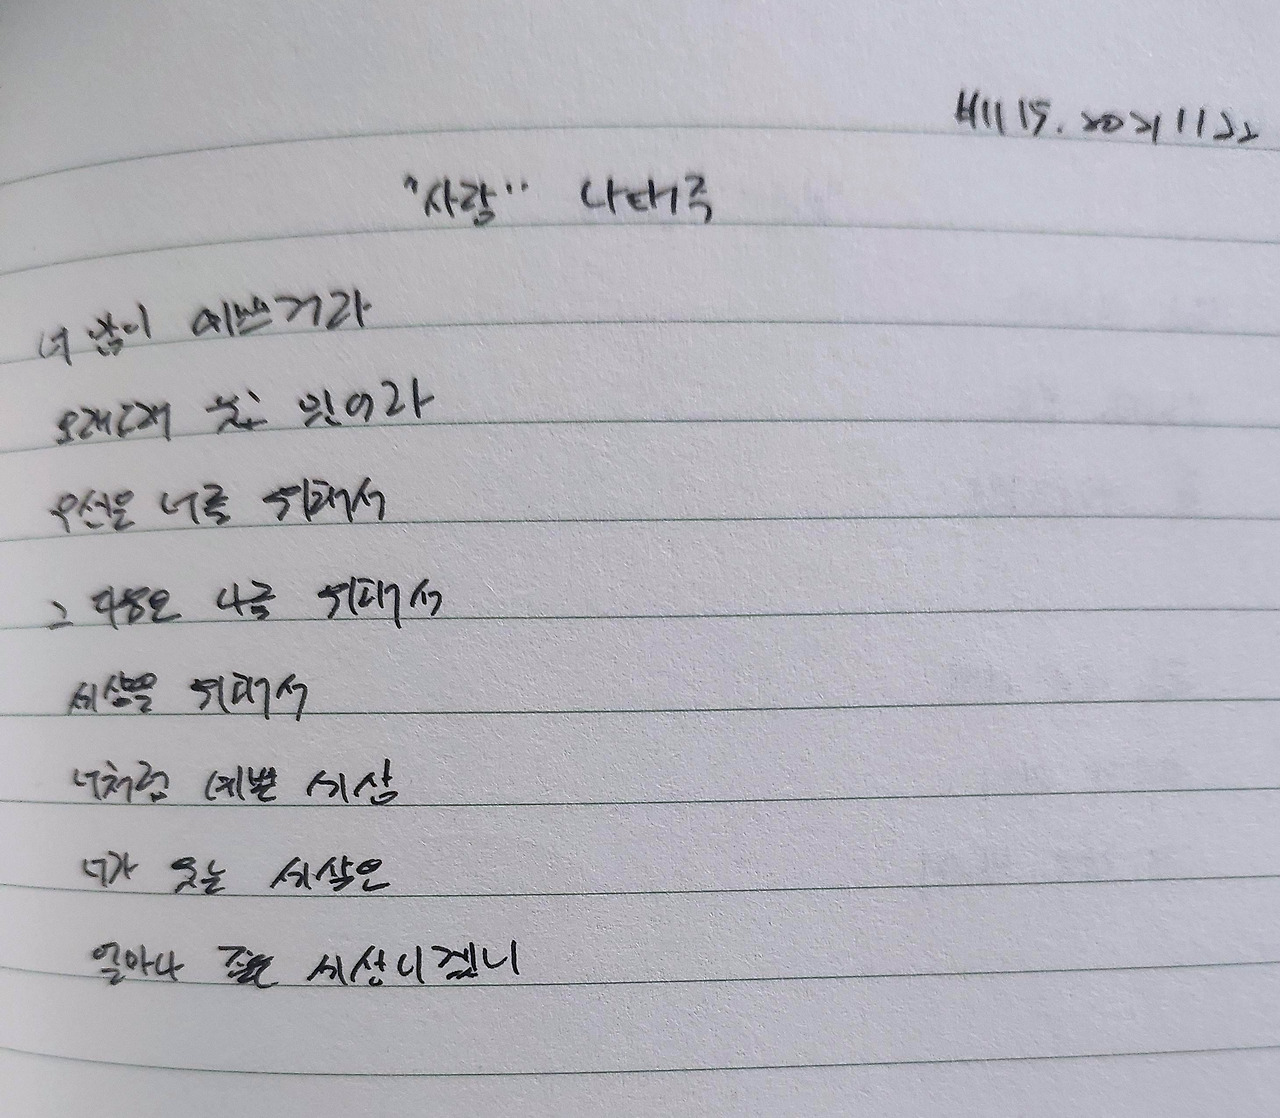 H1115. 20211122
"사랑" 나태주
너 많이 예쁘거라
오래오래 웃고 있어라
우선은 너를 위해서
그 다음은 나를 위해서
세상을 위해서
너처럼 예쁜 세상
네가 웃는 세상은
얼마나 좋은 세상이겠니